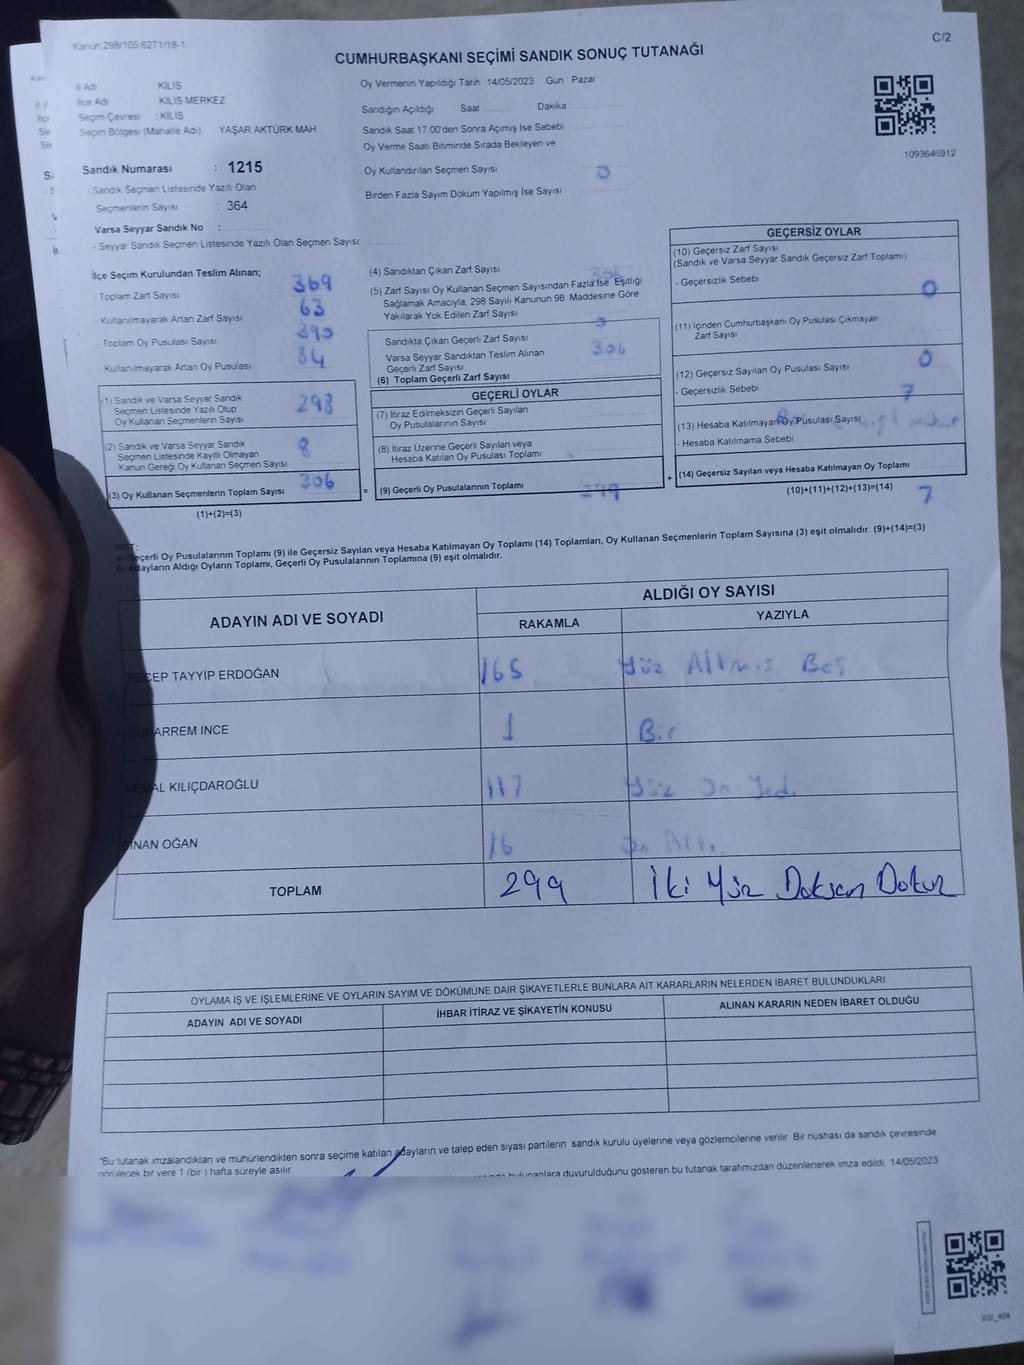 Kanun.298/105.6271/18-1
C/2
CUMHURBAŞKANI SEÇİMİ SANDIK SONUÇ TUTANAĞI
İl Adı KİLİS
İlçe Adı KİLİS MERKEZ
Seçim Çevresi : KİLİS
Seçim Bölgesi (Mahalle Adı) YAŞAR AKTÜRK MAH.
Sandık Numarası : 1215
- Sandık Seçmen Listesinde Yazılı Olan
Seçmenlerin Sayısı : 364
Varsa Seyyar Sandık No :
- Seyyar Sandık Seçmen Listesinde Yazılı Olan Seçmen Sayısı
Oy Vermenin Yapıldığı Tarih 14/05/2023 Gün Pazar
Sandığın Açıldığı Saat Dakika
Sandık Saat 17.00'den Sonra Açımış İse Sebebi
Oy Verme Saati Bitiminde Sırada Bekleyen ve
Oy Kullandırılan Seçmen Sayısı 0
Birden Fazla Sayım Döküm Yapılmış İse Sayısı
1093646912
İlçe Seçim Kurulundan Teslim Alınan;
- Toplam Zarf Sayısı 369
- Kullanılmayarak Artan Zarf Sayısı 63
- Toplam Oy Pusulası Sayısı 390
- Kullanılmayarak Artan Oy Pusulası 84
(1) Sandık ve Varsa Seyyar Sandık
Seçmen Listesinde Yazılı Olup
Oy Kullanan Seçmenlerin Sayısı 298
(2) Sandık ve Varsa Seyyar Sandık
Seçmen Listesinde Kayıtlı Olmayan
Kanun Gereği Oy Kullanan Seçmen Sayısı 8
(3) Oy Kullanan Seçmenlerin Toplam Sayısı 306
(1)+(2)=(3)
(4) Sandıktan Çıkan Zarf Sayısı 306
(5) Zarf Sayısı Oy Kullanan Seçmen Sayısından Fazla İse, Eşitliği
Sağlamak Amacıyla, 298 Sayılı Kanunun 98. Maddesine Göre
Yakılarak Yok Edilen Zarf Sayısı
Sandıkta Çıkan Geçerli Zarf Sayısı 306
Varsa Seyyar Sandıktan Teslim Alınan
Geçerli Zarf Sayısı
(6) Toplam Geçerli Zarf Sayısı
GEÇERLİ OYLAR
(7) İtiraz Edilmeksizin Geçerli Sayılan
Oy Pusulalarının Sayısı
(8) İtiraz Üzerine Geçerli Sayılan veya
Hesaba Katılan Oy Pusulası Toplamı
= (9) Geçerli Oy Pusulalarının Toplamı 299
GEÇERSİZ OYLAR
(10) Geçersiz Zarf Sayısı
(Sandık ve Varsa Seyyar Sandık Geçersiz Zarf Toplamı)
- Geçersizlik Sebebi 0
(11) İçinden Cumhurbaşkanı Oy Pusulası Çıkmayan
Zarf Sayısı 0
(12) Geçersiz Sayılan Oy Pusulası Sayısı
- Geçersizlik Sebebi 7
(13) Hesaba Katılmayan Oy Pusulası Sayısı
- Hesaba Katılmama Sebebi
+ (14) Geçersiz Sayılan veya Hesaba Katılmayan Oy Toplamı
(10)+(11)+(12)+(13)=(14) 7
NOT:
a- Geçerli Oy Pusulalarının Toplamı (9) ile Geçersiz Sayılan veya Hesaba Katılmayan Oy Toplamı (14) Toplamları, Oy Kullanan Seçmenlerin Toplam Sayısına (3) eşit olmalıdır. (9)+(14)=(3)
b- Adayların Aldığı Oyların Toplamı, Geçerli Oy Pusulalarının Toplamına (9) eşit olmalıdır.
ADAYIN ADI VE SOYADI ALDIĞI OY SAYISI
RAKAMLA YAZIYLA
RECEP TAYYİP ERDOĞAN 165 Yüz Altmış Beş
MUHARREM İNCE 1 Bir
KEMAL KILIÇDAROĞLU 117 Yüz On Yedi
SİNAN OĞAN 16 On Altı
TOPLAM 299 İki Yüz Doksan Dokuz
OYLAMA İŞ VE İŞLEMLERİNE VE OYLARIN SAYIM VE DÖKÜMÜNE DAİR ŞİKAYETLERLE BUNLARA AİT KARARLARIN NELERDEN İBARET BULUNDUKLARI
ADAYIN ADI VE SOYADI İHBAR İTİRAZ VE ŞİKAYETİN KONUSU ALINAN KARARIN NEDEN İBARET OLDUĞU
*Bu tutanak imzalandıktan ve mühürlendikten sonra seçime katılan adayların ve talep eden siyasi partilerin sandık kurulu üyelerine veya gözlemcilerine verilir. Bir nüshası da sandık çevresinde
görülecek bir yere 1 (bir) hafta süreyle asılır.
bulunanlara duyurulduğunu gösteren bu tutanak tarafımızdan düzenlenerek imza edildi. 14/05/2023